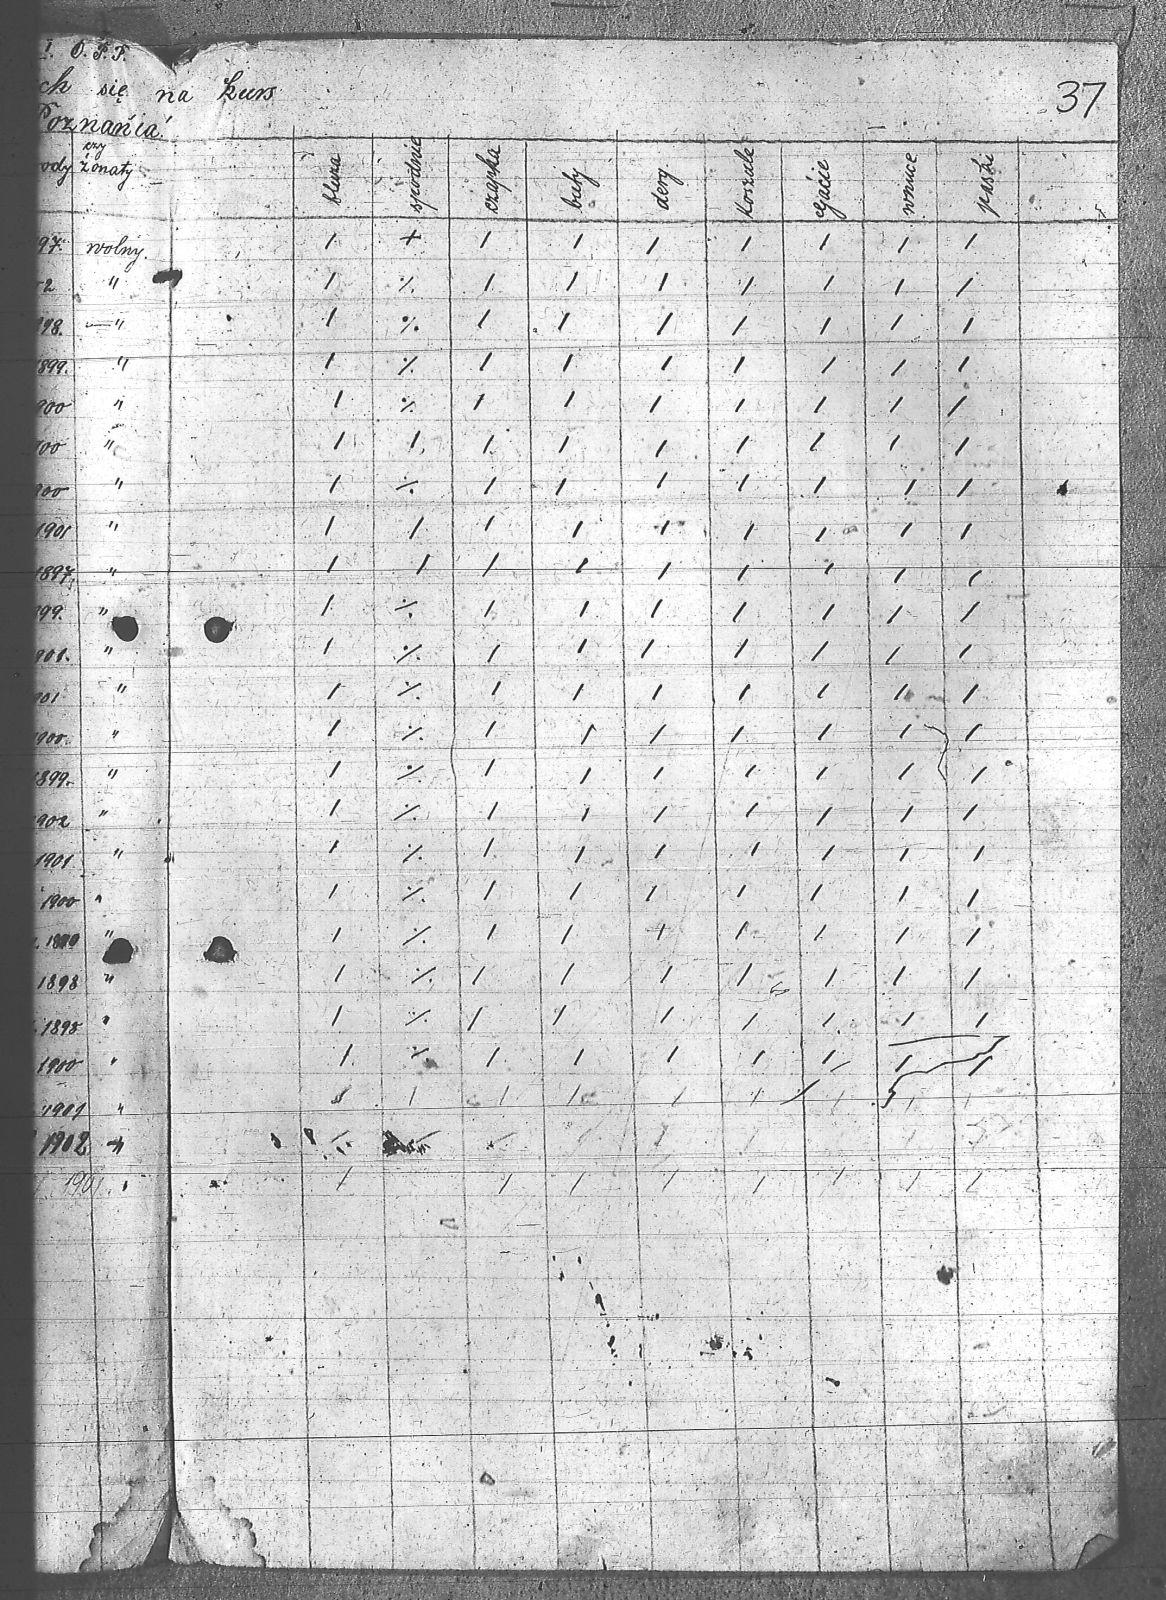 I. O.P.P.
ch się na kurs
Poznania!
37
ody czy żonaty bluza spodnie czapka buty dery koszule gacie onuce paski
97. wolny. / + / / / / / / /
2 " / ./. / / / / / / /
98. —" / ./. / / / / / / /
1899. " / ./. / / / / / / /
900 " / ./. / / / / / / /
00 " / / / / / / / / /
900 " / ./. / / / / / / /
1901 " / / / / / / / / /
1897. " / / / / / / / / /
99. " / ./. / / / / / / /
901. " / ./. / / / / / / /
901 " / ./. / / / / / / /
900. " / ./. / / / / / / /
899. " / ./. / / / / / / /
902 " / ./. / / / / / / /
1901. " / ./. / / / / / / /
1900 " / ./. / / / / / / /
" / ./. / / + / / / /
1898 " / ./. / / / / / / /
1898 " / ./. / / / / / / /
1900 " / ./. / / / / / / /
1901 " / / / / / / / /
1902 "
1901. " / / / / / / / /